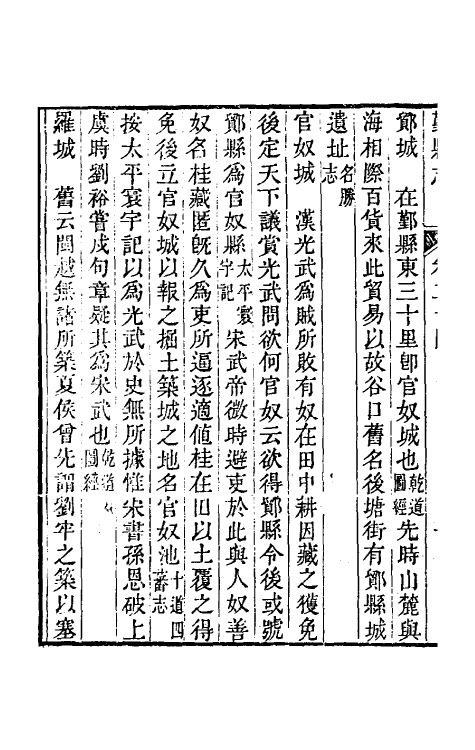 鄞縣志
鄮城　在鄞縣東三十里卽官奴城也乾道圖經先時山麓與
海相際百貨來此貿易以故谷口舊名後塘街有鄮縣城
遺址名勝志
官奴城　漢光武爲賊所敗有奴在田中耕因藏之獲免
後定天下議賞光武問欲何官奴云欲得鄮縣令後或號
鄮縣爲官奴縣太平寰宇記宋武帝微時避吏於此與人奴善
奴名桂藏匿旣久爲吏所逼逐適値桂在田以土覆之得
免後立官奴城以報之掘土築城之地名官奴池十道四蕃志
按太平寰宇記以爲光武於史無所據惟宋書孫恩破上
虞時劉裕嘗戍句章疑其爲宋武也乾道圖經
羅城　舊云閩越無諸所築夏侯曾先謂劉牢之築以塞